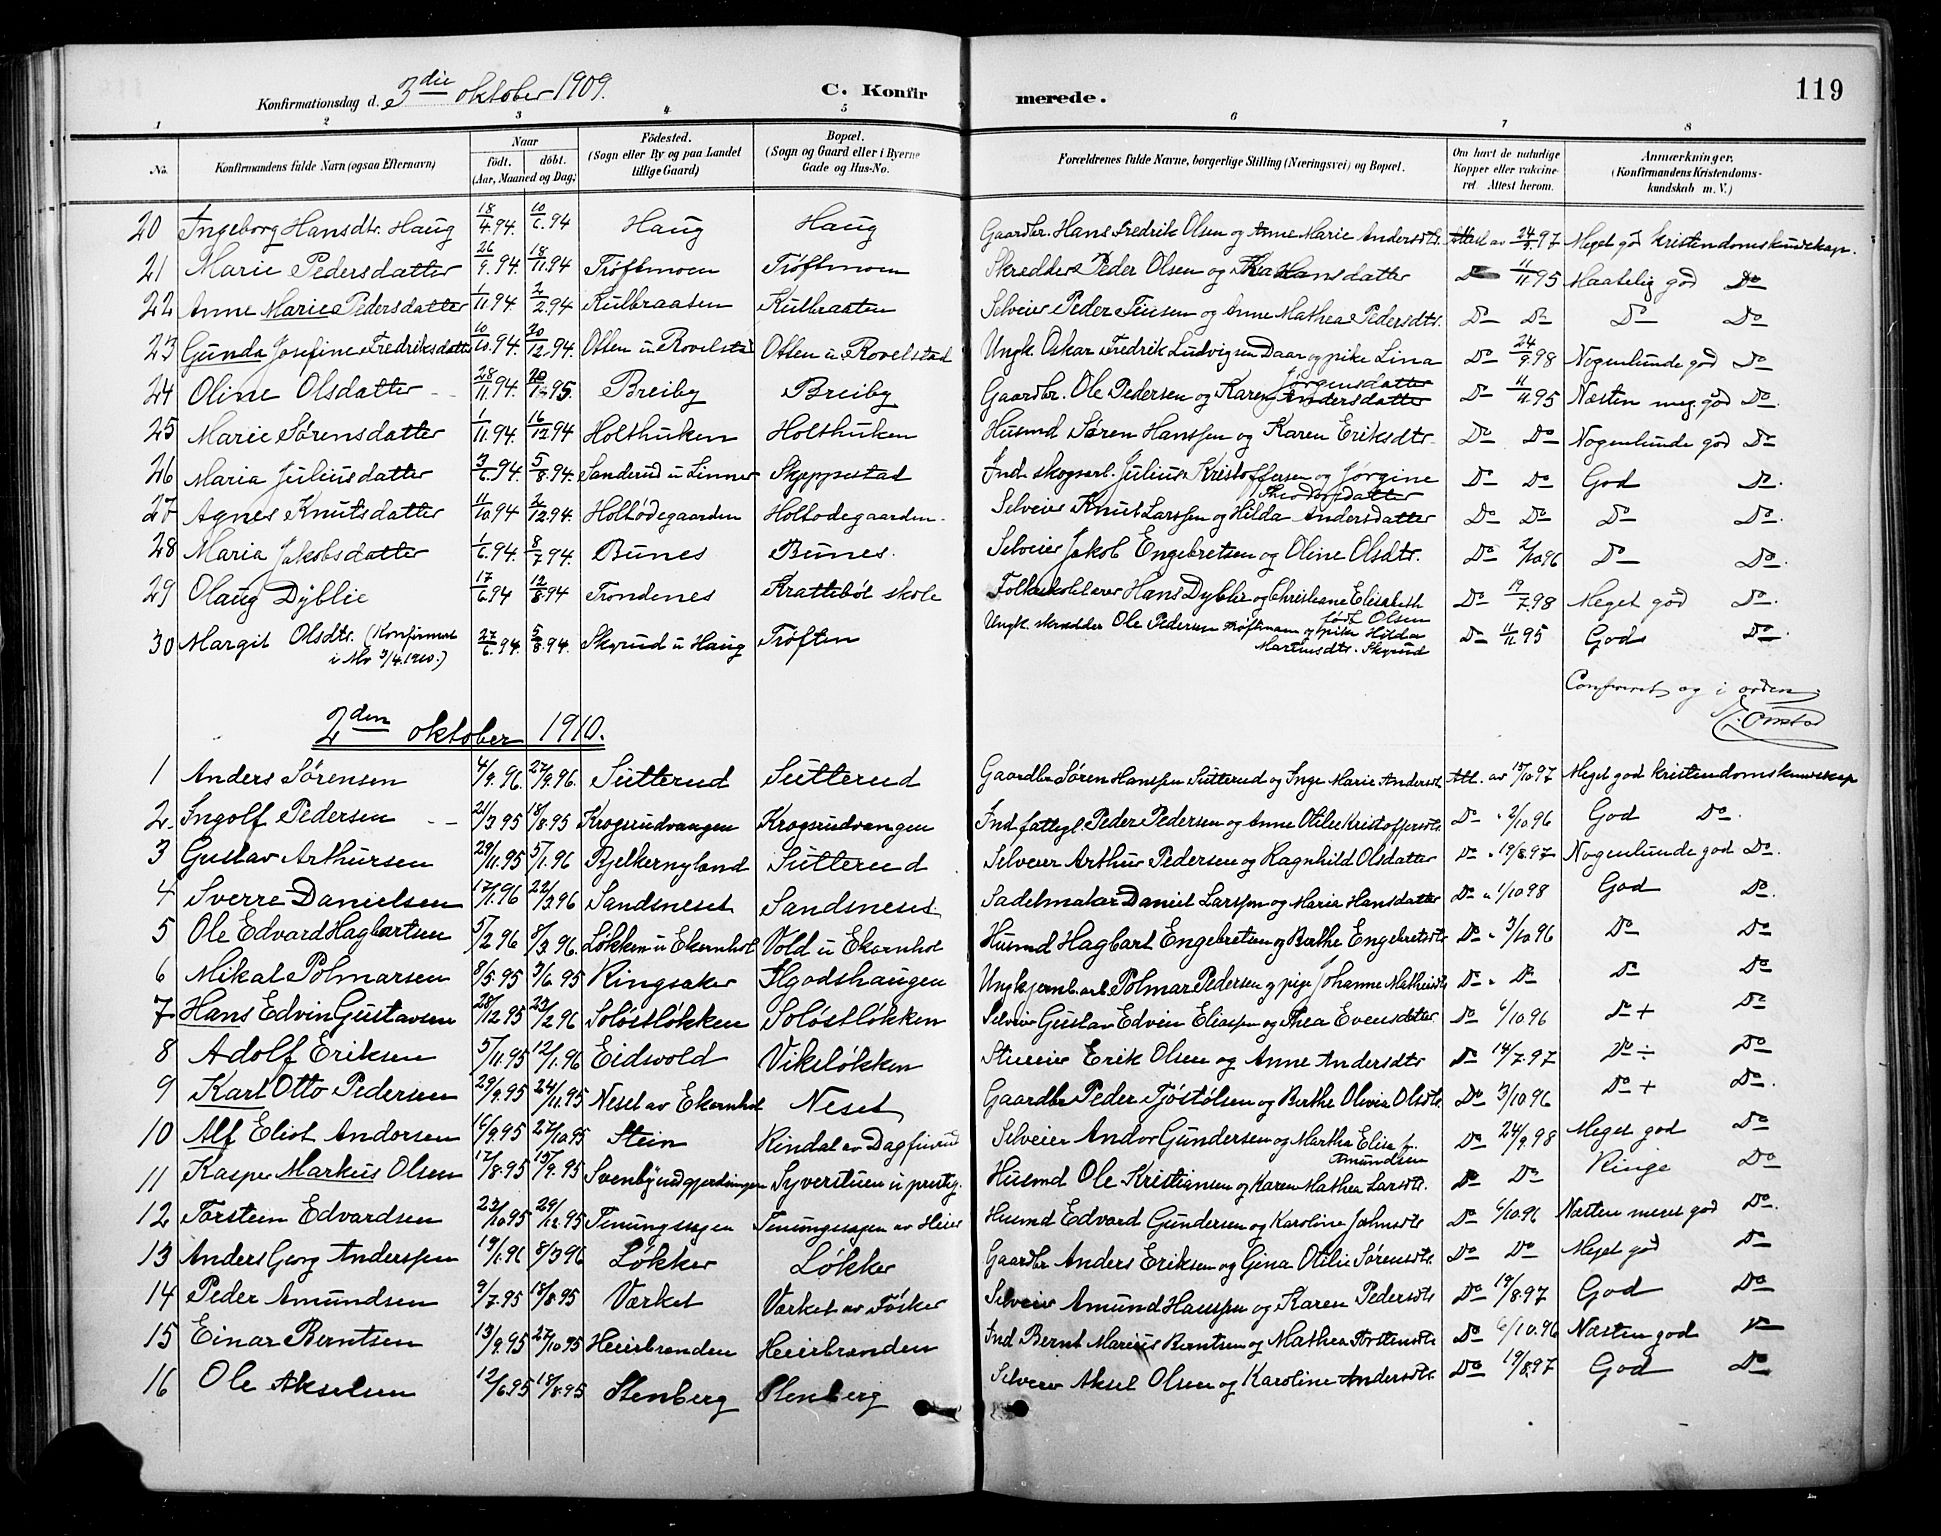 Konfirmationsdag d. 3die oktober 1909. C. Konfirmerede. 119
1 2 3 4 5 6 7 8
No. Konfirmandens fulde Navn (ogsaa Efternavn) Naar født. døbt. (Aar, Maaned og Dag) Fødested. (Sogn eller By og paa Landet tillige Gaard) Bopæl. (Sogn og Gaard eller i Byerne Gade og Hus-No. Forældrenes fulde Navne, borgerlige Stilling (Næringsvei) og Bopæl. Om havt de naturlige Kopper eller vaccineret Attest herom. Anmærkninger. (Konfirmandens Kristendomskundskab m. V.)
20 Ingeborg Hansdtr. Haug 18/4 94. 10/6 94 Haug Haug Gaardbr. Hans Fredrik Olsen og Anne Marie Andersdtr. Attest av 97 Meget god kristendomskundskap.
21 Marie Pedersdatter 26/9 94. 18/11 94 Trøftmoen Trøftmoen Skredder Peder Olsen og Thea Hansdatter Do 11/11 95 Maatelig god Do
22 Anne Marie Pedersdatter 1/11 94. 2/2 94 Kulbraaten Kulbraaten Selveier Peder Jensen og Anne Mathea Pedersdtr. Do Do Do Do
23 Gunda Josefine Fredriksdatter 10/10 94. 20/12 94. Otten u. Rovelstad Otten u. Rovelstad Ungk. Oskar Fredrik Ludvigsen Daar og pike Lina Do 24/9 98 Nogenlunde god Do
24 Oline Olsdatter 28/11 94. 95 Breiby Breiby Gaardbr. Ole Pedersen og Karen Andersdatter Jørgensdatter Do 11/11 95 Næsten meg. god Do.
25 Marie Sørensdatter 1/11 94. 16/12 94 Holthuken Holthuken Husmd Søren Hanssen og Karen Eriksdtr. Do Do Nogenlunde god Do
26 Maria Juliusdatter 3/6 94 5/8 94. Sanderud u Linner Skjeppestad Ind. skogsarb. Julius Kristoffersen og Jørgine Do Do God Do.
27 Agnes Knutsdatter 11/10 94 2/12 94. Holtødegaarden Holtødegaarden Selveier Knut Larssen og Hilda Andersdatter Do Do Do Do.
28 Maria Jakobsdatter 1/6 94. 8/7 94. Bunes Bunes. Selveier Jakob Engebretsen og Oline Olsdtr. Do 2/10 96 Do Do.
29 Olaug Dyblie 17/6 94 12/8 94 Trondenes Krattebøl skole Folkeskolelærer Hans Dyblie og Christiane Elisabeth født Olsen Do 19/7 98 Meget god Do.
30 Margit Olsdtr. (Konfirmert i Mo 3/4 1910.) 27/6 94. 5/8 94. Skyrud u Haug Trøften Ungk. skrædder Ole Pedersen Trøftmoen og pike Hilda Martinsdtr. Skyrud Do 11/11 95 God Do
Confereret og i orden
2den oktober 1910.
1 Anders Sørensen 4/9. 96 27/9. 96. Sutterud Sutterud Gaardbr Søren Hanssen Sutterud og Inge Marie Andersdt Att. av 15/10 97 Meget god kristendomskundskap
2. Ingolf Pedersen 21/3 95 18/8. 95 Krogsrudvangen Krogsrudvangen Ind fattigl Peder Pedersen og Anne Otilie Kristoffersdtr. Do " 2/10 96 God Do.
3 Gustav Arthursen 29/11. 95 5/1. 96 Bjelkernyland Sutterud Selveier Arthur Pedersen og Ragnhild Olsdatter Do " 19/8. 97 Nogenlunde god Do.
4 Sverre Danielsen 17/1. 96 22/3 96 Sandsneset Sandsneset. Sadelmaker Daniel Larssen og Marie Hansdatter Do " 1/10 98 God Do.
5 Ole Edvard Hagbartsen 5/2 96 8/3. 96. Løkken u Ekornhol Vold u Ekornhol Husmd Hagbart Engebretsen og Berthe Engebretsdtr Do " 3/10 96 Do Do
6 Mikal Polmarsen 8/5. 95 3/6. 95 Ringsaker Elgodshaugen Ungk jernb. arb. Polmar Pedersen og pige Johanne Do " Do Do Do
7 Hans Edvin Gustavsen 28/12 95 23/2 96 Soløstløkken Soløstløkken Selveier Gustav Edvin Eliassen og Thea Evensdatter Do 6/10 96 Do + Do
8 Adolf Eriksen 5/11. 95 12/1. 96 Eidsvold Vikeløkken Erik Olsen og Anne Andersdtr Do 14/7. 97 Do ÷ Do
9 Karl Otto Pedersen 29/9. 95 24/11. 95 Neset av Ekornhol Neset Gaardbr Peder Tjøstølsen og Berthe Olivia Olsdtr. Do 3/10 96 Do + Do.
10 Alf Eliot Andorsen 16/9. 95 27/10 95 Stein Rindal av Dagfinrud Selveier Andor Gundersen og Martha Elise f. Amundsen Do 24/9. 98 Meget god Do
11 Kasper Markus Olsen 17/8. 95 15/9. 95 Svenbyrudgjerdingen Syverstuen u prestg. Husmd Ole Kristiansen og Karen Mathea Larsdt. Do Do Ringe Do
12 Torstein Edvardsen 23/10 95 29/12. 95 Tenungssagen Tenungssagen av Heier Husmd Edvard Gundersen og Karoline Johnsdtr Do 6/10 96 Næsten meget god Do.
13 Anders Georg Anderssen 19/1. 96 8/3 96 Løkker Løkker Gaardbr Anders Eriksen og Gina Otilie Sørensdtr. Do Do Meget god Do
14 Peder Amundsen 9/7. 95 18/8. 95 Værket Værket av Fosker Selveier Amund Hanssen og Karen Pedersdtr Do 19/8. 97 God Do
15 Einar Berntsen 13/9. 95 27/10 95 Heierbrænden Heierbrænden Ind Bernt Marius Berntsen og Mathea Torstensdtr Do 6/10. 96 Næsten god Do
16 Ole Akselsen 12/6. 95 18/8 95 Stenberg Stenberg Selveier Aksel Olsen og Karoline Andersdtr. Do 19/8. 97 God Do